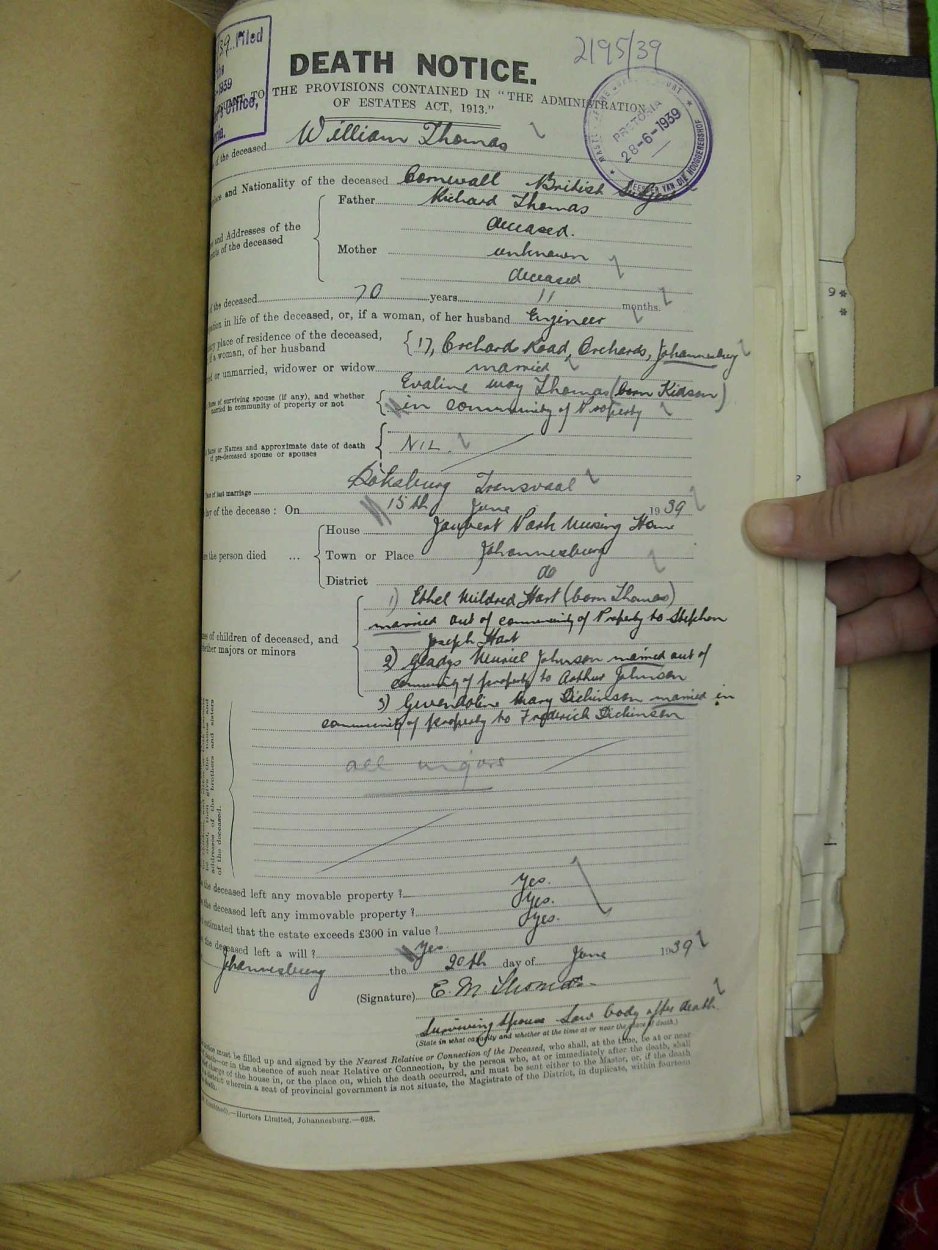 2195/39
Filed
1939
Office,
DEATH NOTICE.
TO THE PROVISIONS CONTAINED IN "THE ADMINISTRATION
OF ESTATES ACT, 1913."
PRETORIA
28-6-1939
MEESTER VAN DIE HOOGGEREGSHOF
of the deceased William Thomas
and Nationality of the deceased Cornwall British Subject
and Addresses of the
of the deceased
Father Richard Thomas
deceased.
Mother unknown
deceased
of the deceased 70 years 11 months.
in life of the deceased, or, if a woman, of her husband Engineer
place of residence of the deceased,
if a woman, of her husband
17, Orchard Road, Orchards, Johannesburg
or unmarried, widower or widow married
of surviving spouse (if any), and whether
married in community of property or not
Evaline May Thomas (born Kidson)
in community of Property
or Names and approximate date of death
of pre-deceased spouse or spouses
NIL.
of last marriage Boksburg Transvaal
of the decease: On 15th June 1939
the person died ...
House Joubert Park Nursing Home
Town or Place Johannesburg
District do
of children of deceased, and
whether majors or minors
1) Ethel Mildred Hart (born Thomas)
married out of community of Property to Stephen
Joseph Hart
2) Gladys Muriel Johnson married out of
community of property to Arthur Johnson
3) Gwendoline Mary Dickinson married in
community of property to Frederick Dickinson
all majors
addresses of the brothers and sisters
of the deceased.
the deceased left any movable property? Yes.
the deceased left any immovable property? Yes.
estimated that the estate exceeds £300 in value? Yes.
the deceased left a will? Yes.
Johannesburg the 20th day of June 1939
(Signature) E. M. Thomas
Surviving Spouse Saw body after death
(State in what capacity and whether at the time at or near the place of death.)
must be filled up and signed by the Nearest Relative or Connection of the Deceased, who shall, at the time, be at or near
or in the absence of such near Relative or Connection, by the person who, at or immediately after the death, shall
charge of the house in, or the place on, which the death occurred, and must be sent either to the Master, or, if the death
district wherein a seat of provincial government is not situate, the Magistrate of the District, in duplicate, within fourteen
Hortors Limited, Johannesburg.—628.